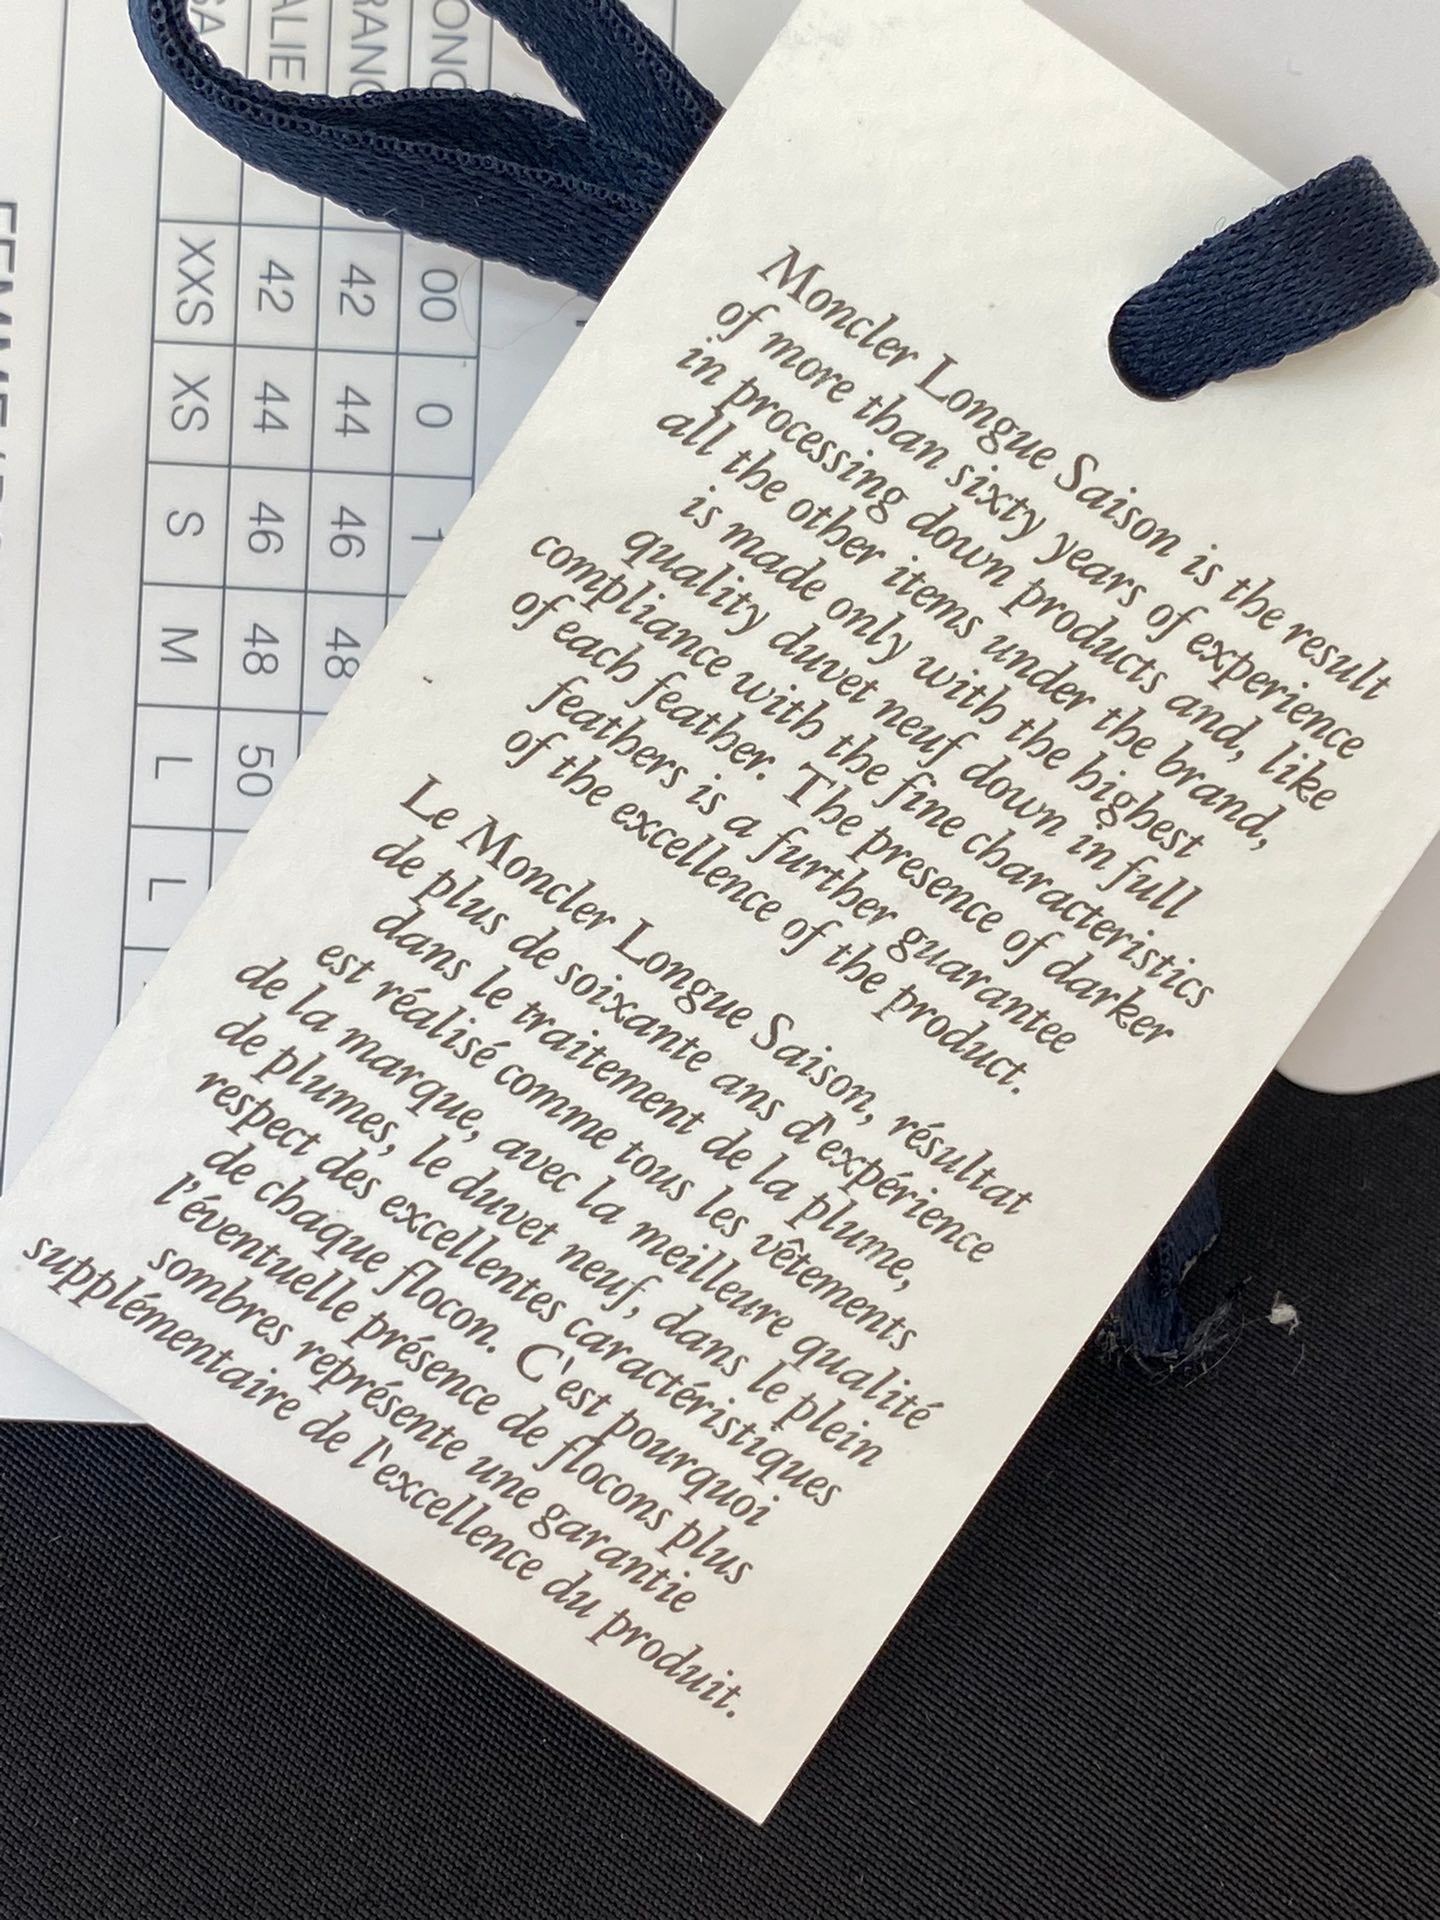 Moncler Longue Saison is the result
of more than sixty years of experience
in processing down products and, like
all the other items under the brand,
is made only with the highest
quality duvet neuf down in full
compliance with the fine characteristics
of each feather. The presence of darker
feathers is a further guarantee
of the excellence of the product.
Le Moncler Longue Saison, résultat
de plus de soixante ans d'expérience
dans le traitement de la plume,
est réalisé comme tous les vêtements
de la marque, avec la meilleure qualité
de plumes, le duvet neuf, dans le plein
respect des excellentes caractéristiques
de chaque flocon. C'est pourquoi
l'éventuelle présence de flocons plus
sombres représente une garantie
supplémentaire de l'excellence du produit.
00 0 1
42 44 46 48
42 44 46 48 50
XXS XS S M L L